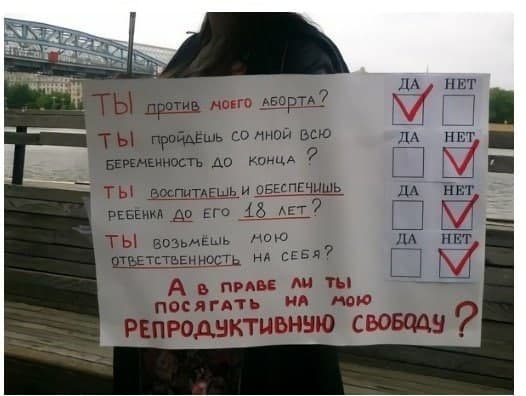 ДА НЕТ
ТЫ против моего аборта?
ДА НЕТ
ТЫ пройдёшь со мной всю
беременность до конца ?
ДА НЕТ
ТЫ воспитаешь и обеспечишь
ребёнка до его 18 лет?
ДА НЕТ
ТЫ возьмёшь мою
ответственность на себя?
А в праве ли ты
посягать на мою
РЕПРОДУКТИВНУЮ СВОБОДУ?